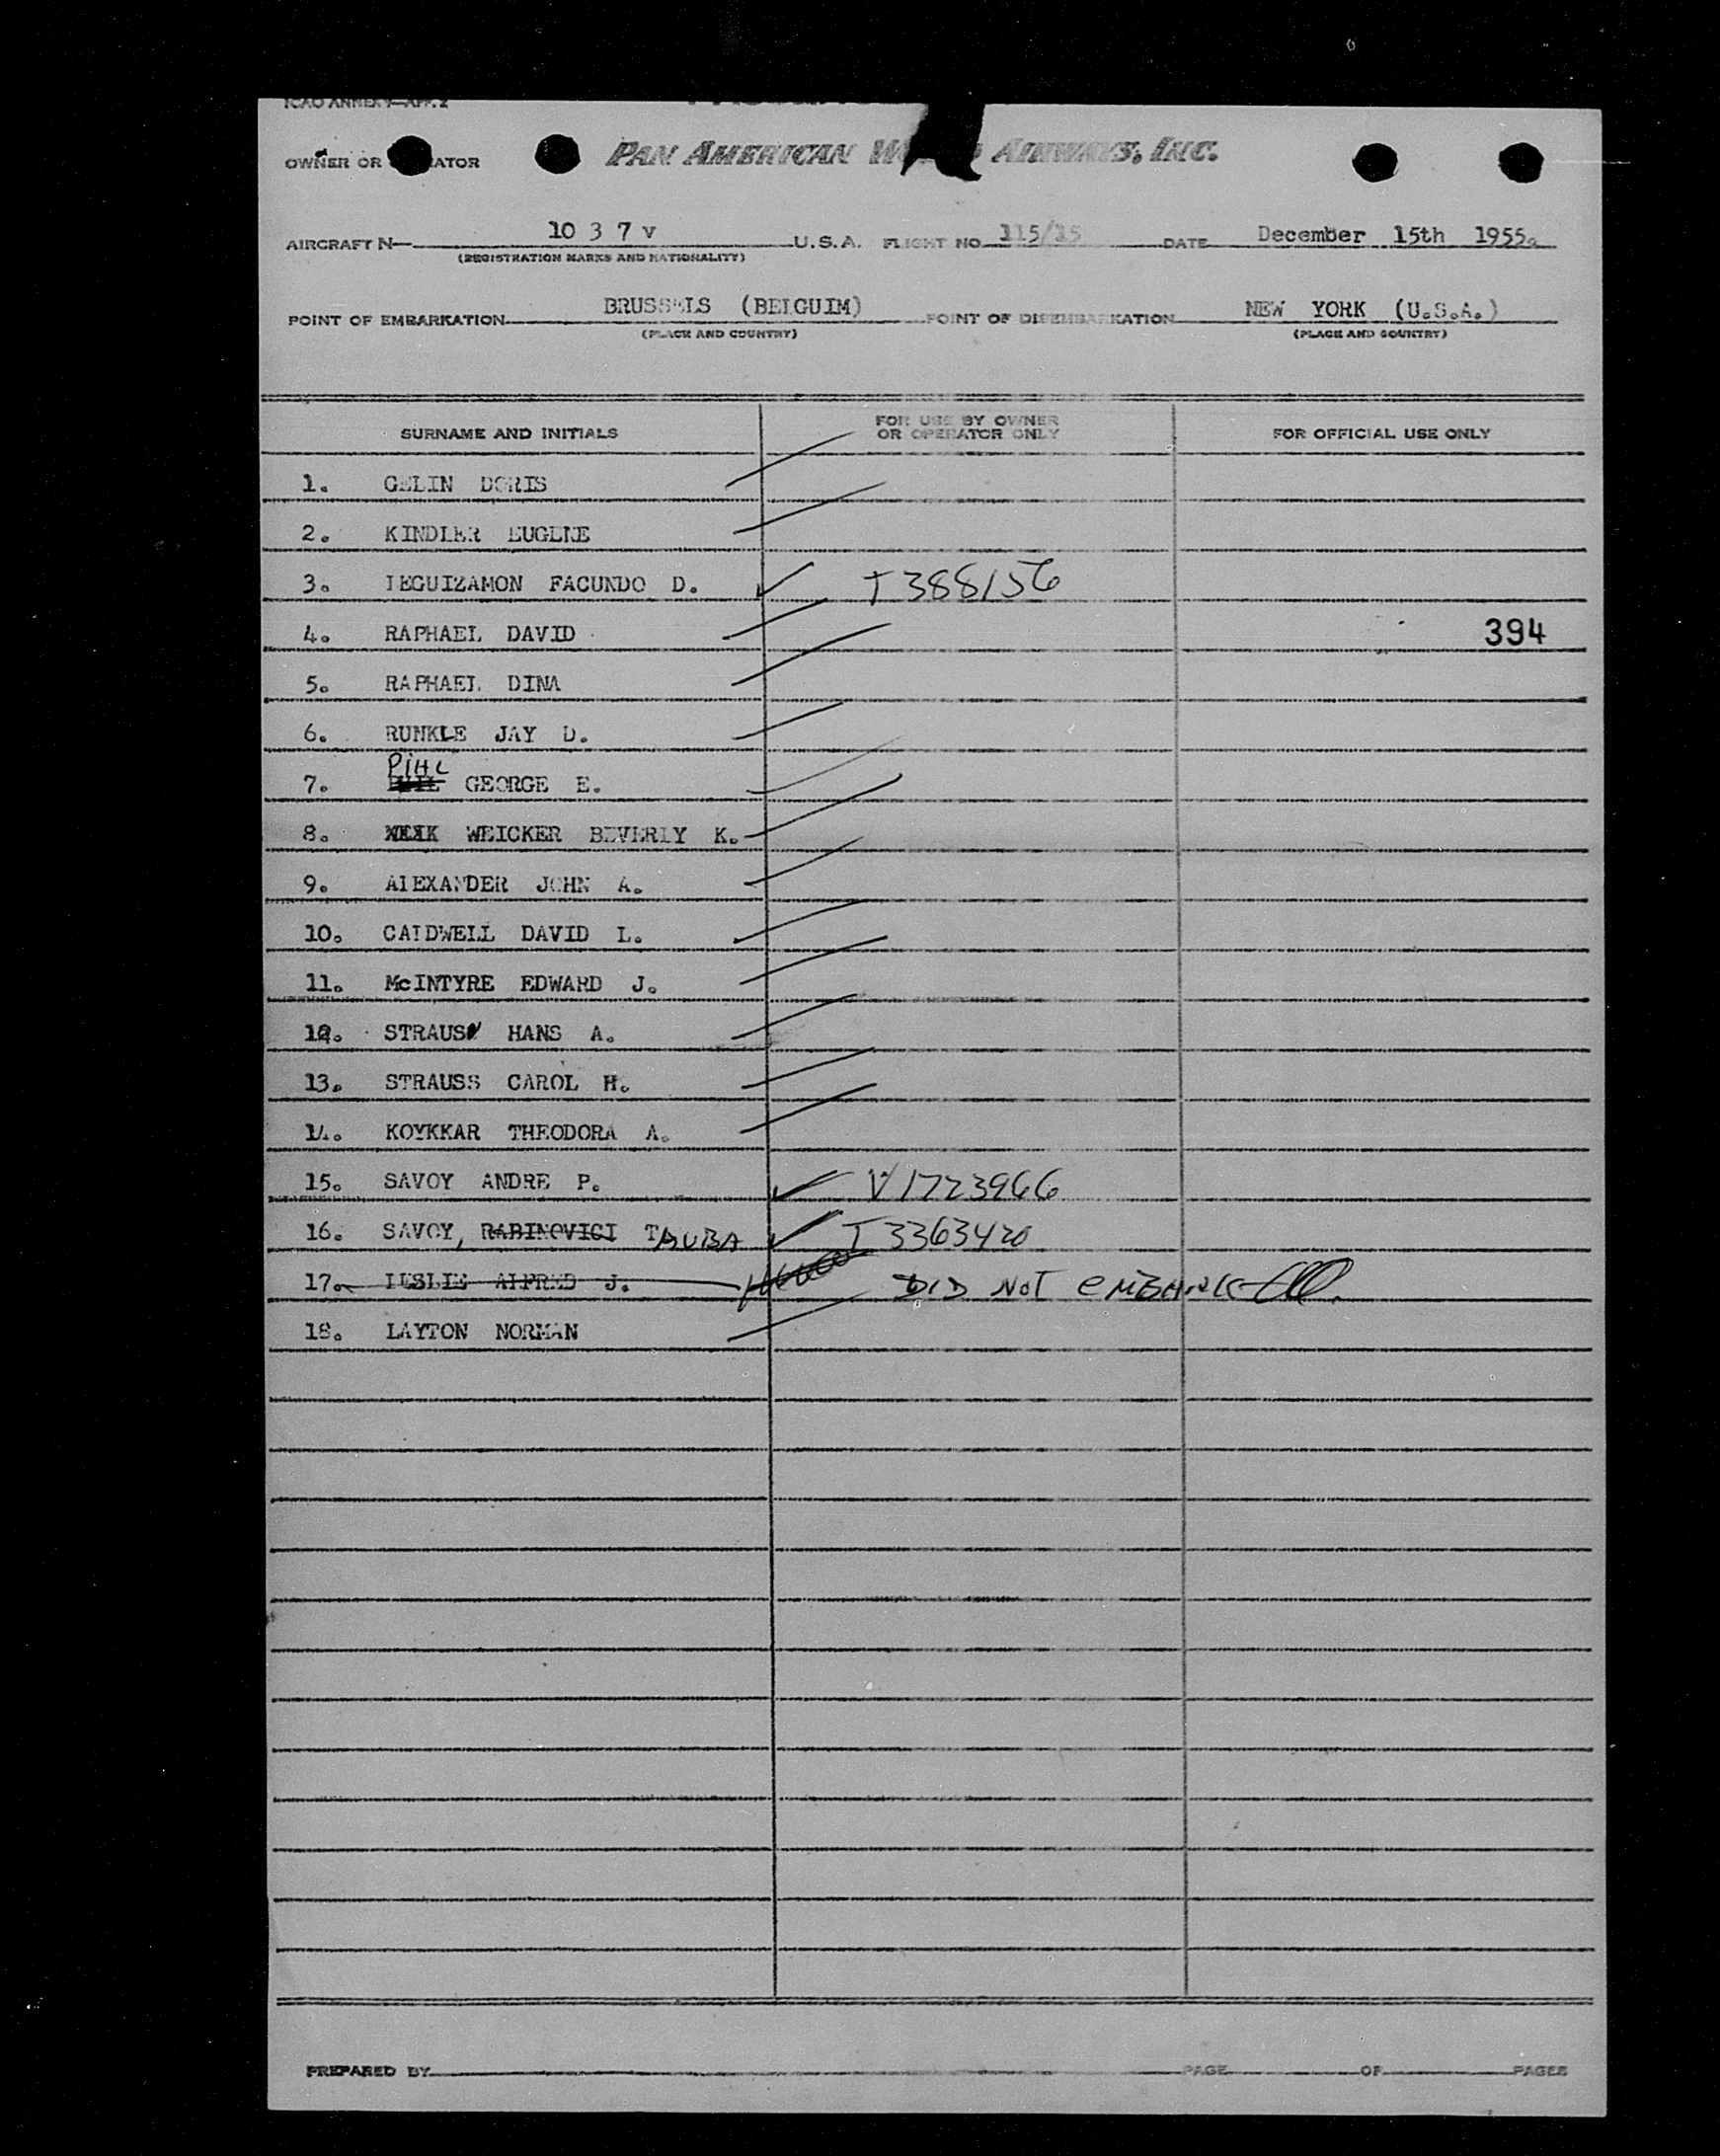 ICAO ANNEX 9—APP. 2
OWNER OR ATOR PAN AMERICAN W AIRWAYS, INC.
AIRCRAFT N— 10 3 7 v U.S.A. FLIGHT NO. 115/15 DATE December 15th 1955.
(REGISTRATION MARKS AND NATIONALITY)
POINT OF EMBARKATION BRUSSELS (BELGUIM) POINT OF DISEMBARKATION NEW YORK (U.S.A.)
(PLACE AND COUNTRY) (PLACE AND COUNTRY)
SURNAME AND INITIALS FOR USE BY OWNER OR OPERATOR ONLY FOR OFFICIAL USE ONLY
1. GELIN DORIS
2. KINDLER EUGENE
3. LEGUIZAMON FACUNDO D. ✓ T388156
4. RAPHAEL DAVID 394
5. RAPHAEL DINA
6. RUNKLE JAY D.
7. PIHL GEORGE E.
8. WEICKER BEVERLY K.
9. ALEXANDER JOHN A.
10. CALDWELL DAVID L.
11. McINTYRE EDWARD J.
12. STRAUSS HANS A.
13. STRAUSS CAROL H.
14. KOYKKAR THEODORA A.
15. SAVOY ANDRE P. ✓ V1723966
16. SAVOY, RABINOVICI TAUBA ✓ T3363420
17. LESLIE ALFRED J. DID NOT EMBARK
18. LAYTON NORMAN
PREPARED BY PAGE OF PAGES